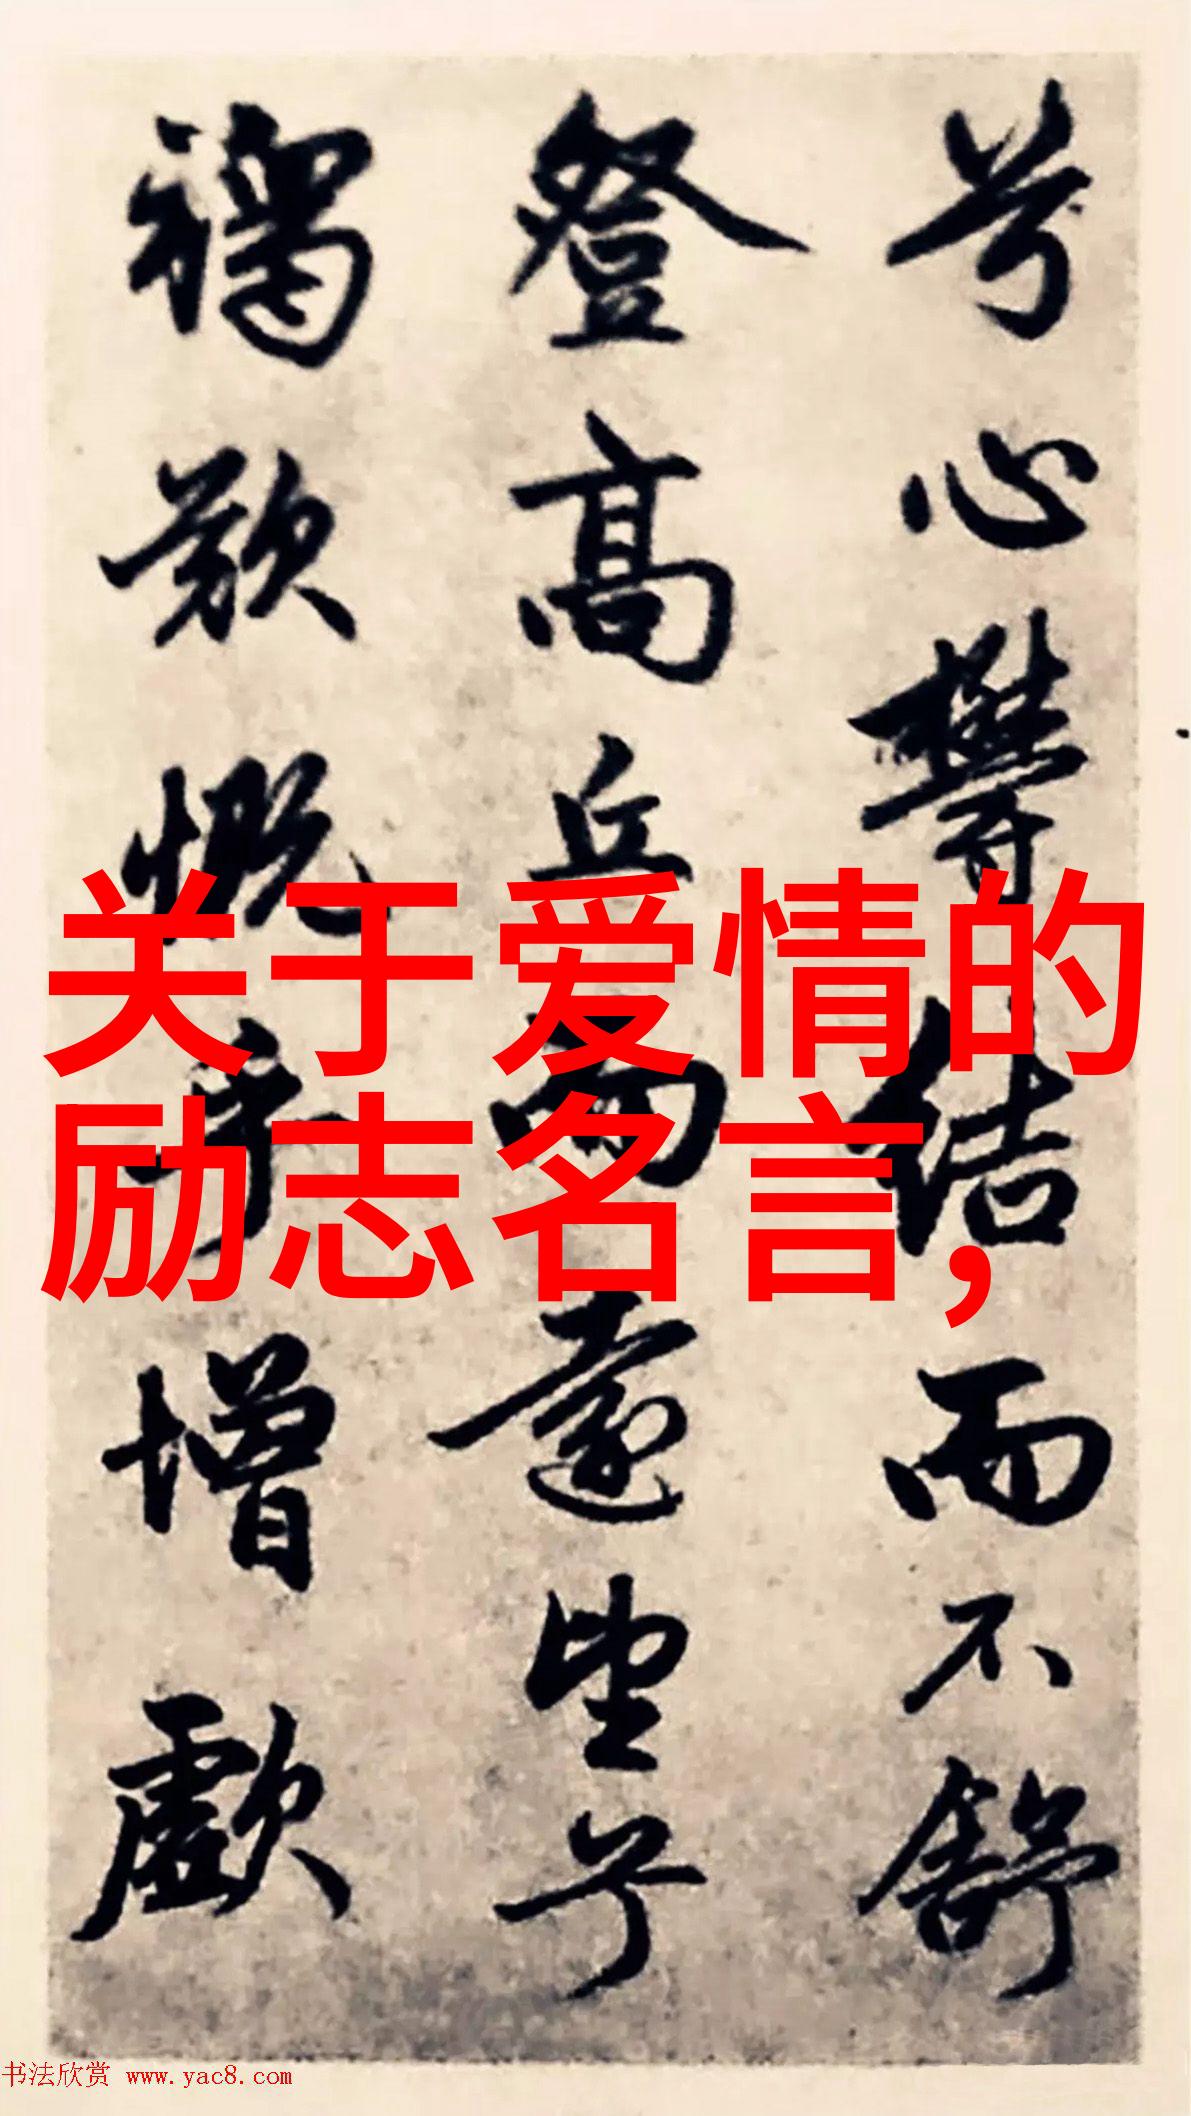 兮心欝結而不舒
登高丘而遠望兮
褐歎慨乎增歔
关于爱情的
励志名言,
书法欣赏 www.yac8.com